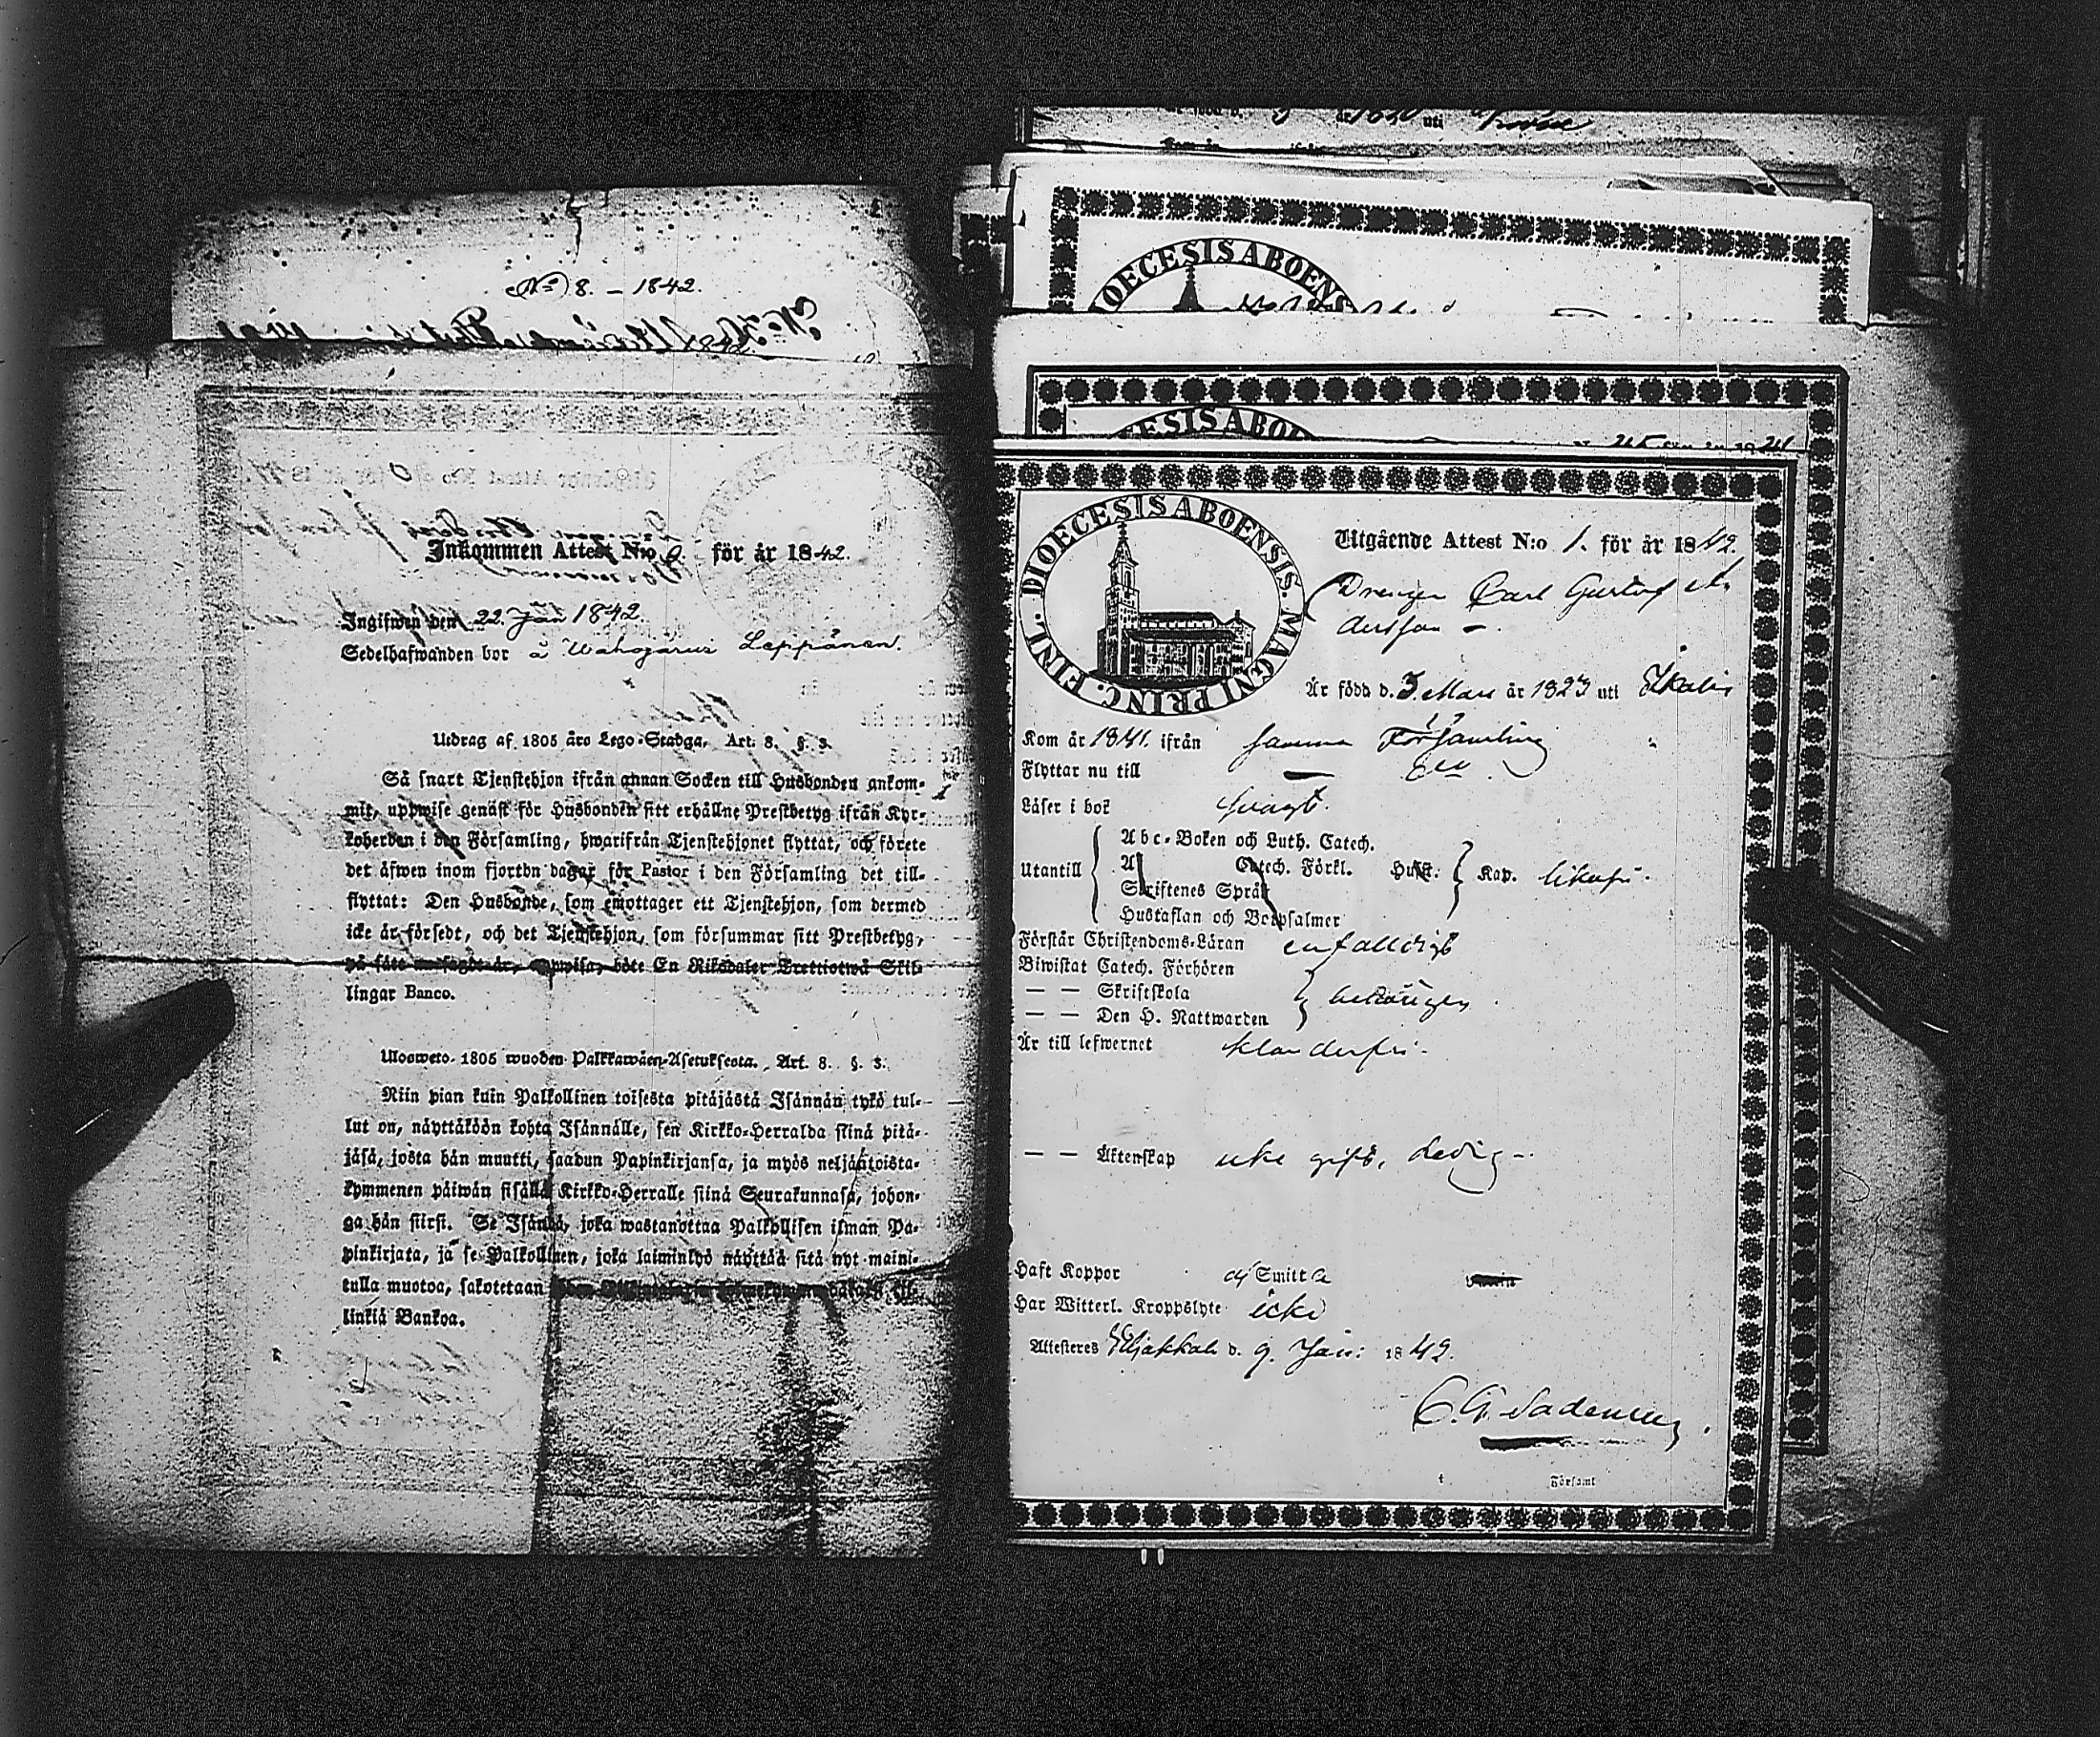 N:o 8. – 1842.
Inkommen Attest N:o för år 1842.
Ingifwen den 22. Jan 1842.
Sedelhafwanden bor å Wahogarus Leppänen.
Utdrag af 1805 års Lego-Stadga. Art. 8. §. 3.
Så snart Tjenstehjon ifrån annan Socken till Husbonden ankom-
mit, uppwise genast för Husbonden sitt erhållne Prestbetyg ifrån Kyr-
koherden i den Församling, hwarifrån Tjenstehjonet flyttat, och förete
det äfwen inom fjorton dagar för Pastor i den Församling det till-
flyttat: Den Husbonde, som emottager ett Tjenstehjon, som dermed
icke är försedt, och det Tjenstehjon, som försummar sitt Prestbetyg,
på sätt nu sagdt är, uppwisa, böte En Riksdaler Trettiotwå Skil-
lingar Banco.
Ulosweto. 1805 wuoden Palkkawäen-Asetuksesta. Art. 8. §. 3.
Niin pian kuin Palkollinen toisesta pitäjästä Isännän tykö tul-
lut on, näyttäköön kohta Isännälle, sen Kirkko-Herralda siinä pitä-
jäsä, josta hän muutti, saadun Papinkirjansa, ja myös neljäntoista-
kymmenen päiwän sisällä Kirkko-Herralle siinä Seurakunnasa, johon-
ga hän siirsi. Se Isändä, joka wastanottaa Palkollisen ilman Pa-
pinkirjata, ja se Palkollinen, joka laiminlyö näyttää sitä nyt maini-
tulla muotoa, sakotetaan
linkiä Bankoa.
DIOECESIS ABOENS
ESIS ABO
DIOECESIS ABOENSIS. MAGNI PRINC. FINL.
Utgående Attest N:o 1. för år 1842.
Drengen Carl Gustaf An
dersson –.
Är född d. 3 Mars år 1823 uti Ikalis
Kom år 1841. ifrån samma Församling
Flyttar nu till
Läser i bok svagt.
Abc-Boken och Luth. Catech.
Utantill Catech. Förkl. Husst. Kap. likaså.
Skriftenes Språk
Hustaflan och Botpsalmer
Förstår Christendoms-Läran enfaldigt
Biwistat Catech. Förhören
— — Skriftskola behörigen.
— — Den H. Nattwarden
Är till lefwernet klanderfri.
— — Äktenskap icke gift, ledig –.
Haft Koppor ej Smitta
Har Witterl. Kroppslyte icke
Attesteres d. 9. Jan: 1842.
Församl